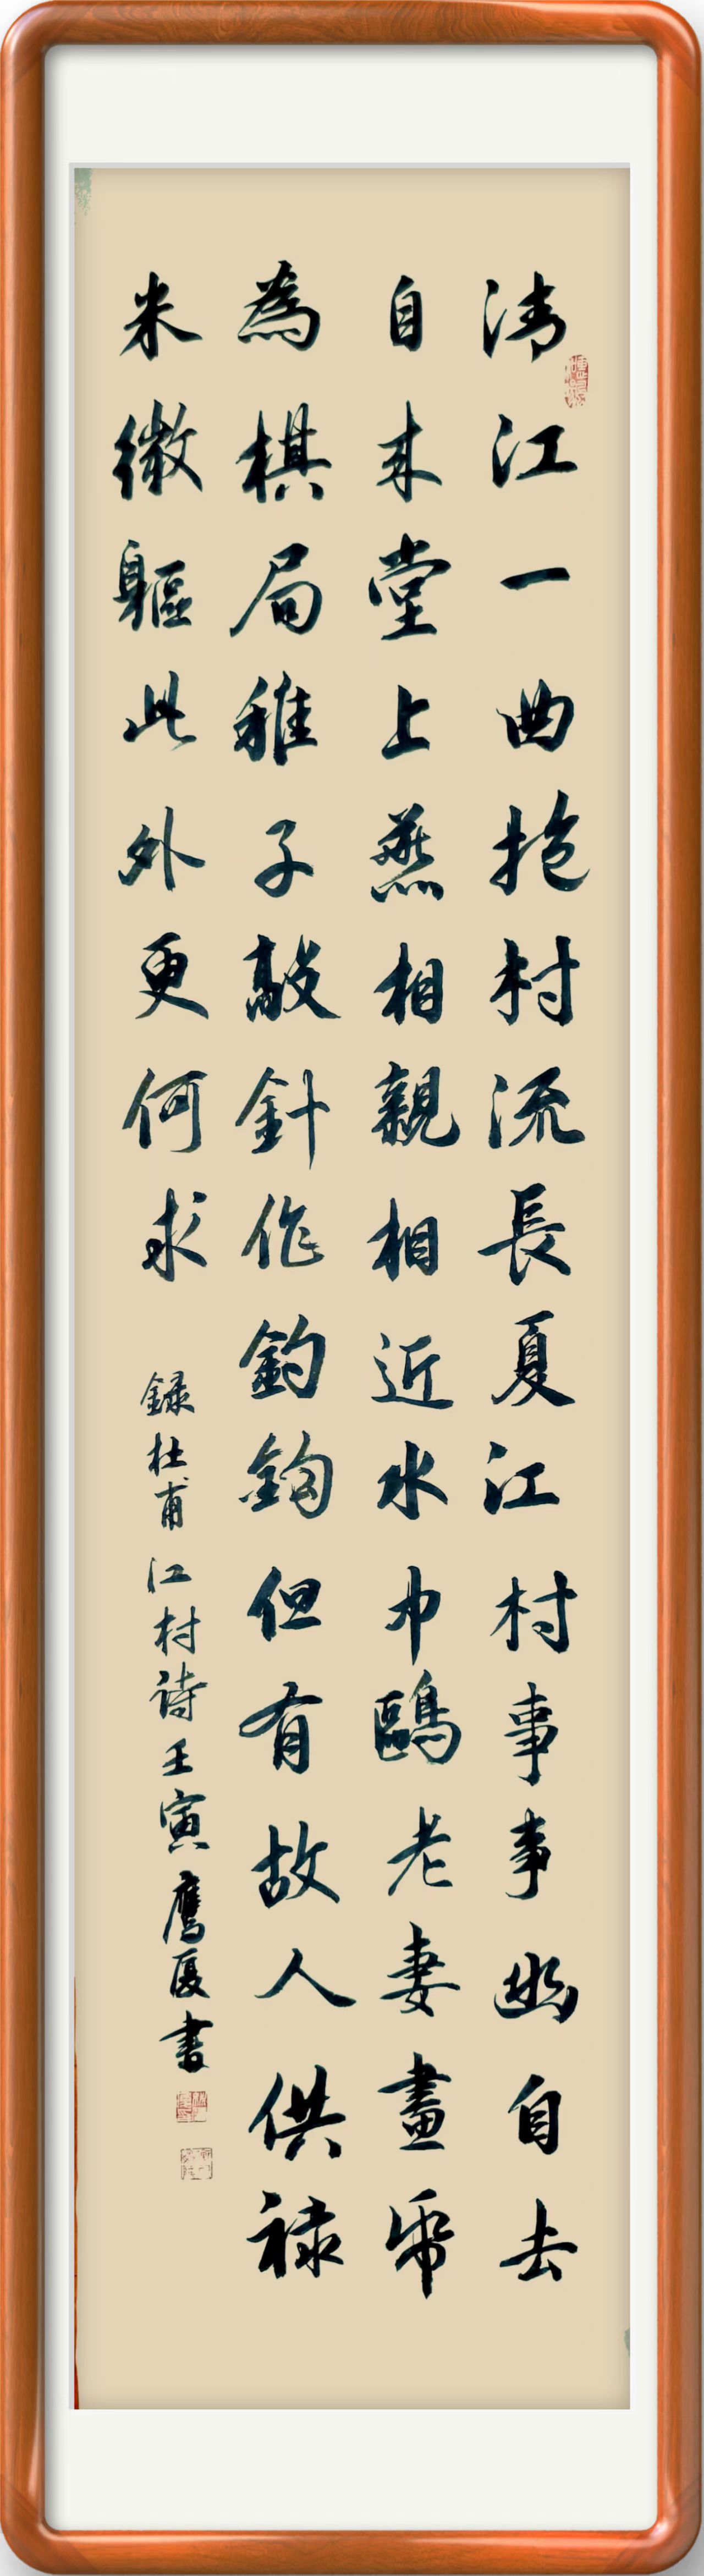 清江一曲抱村流長夏江村事事幽自去
自来堂上燕相親相近水中鷗老妻畫帋
為棋局稚子敲針作釣鈎但有故人供禄
米微軀此外更何求 録杜甫江村诗壬寅鷹厦書